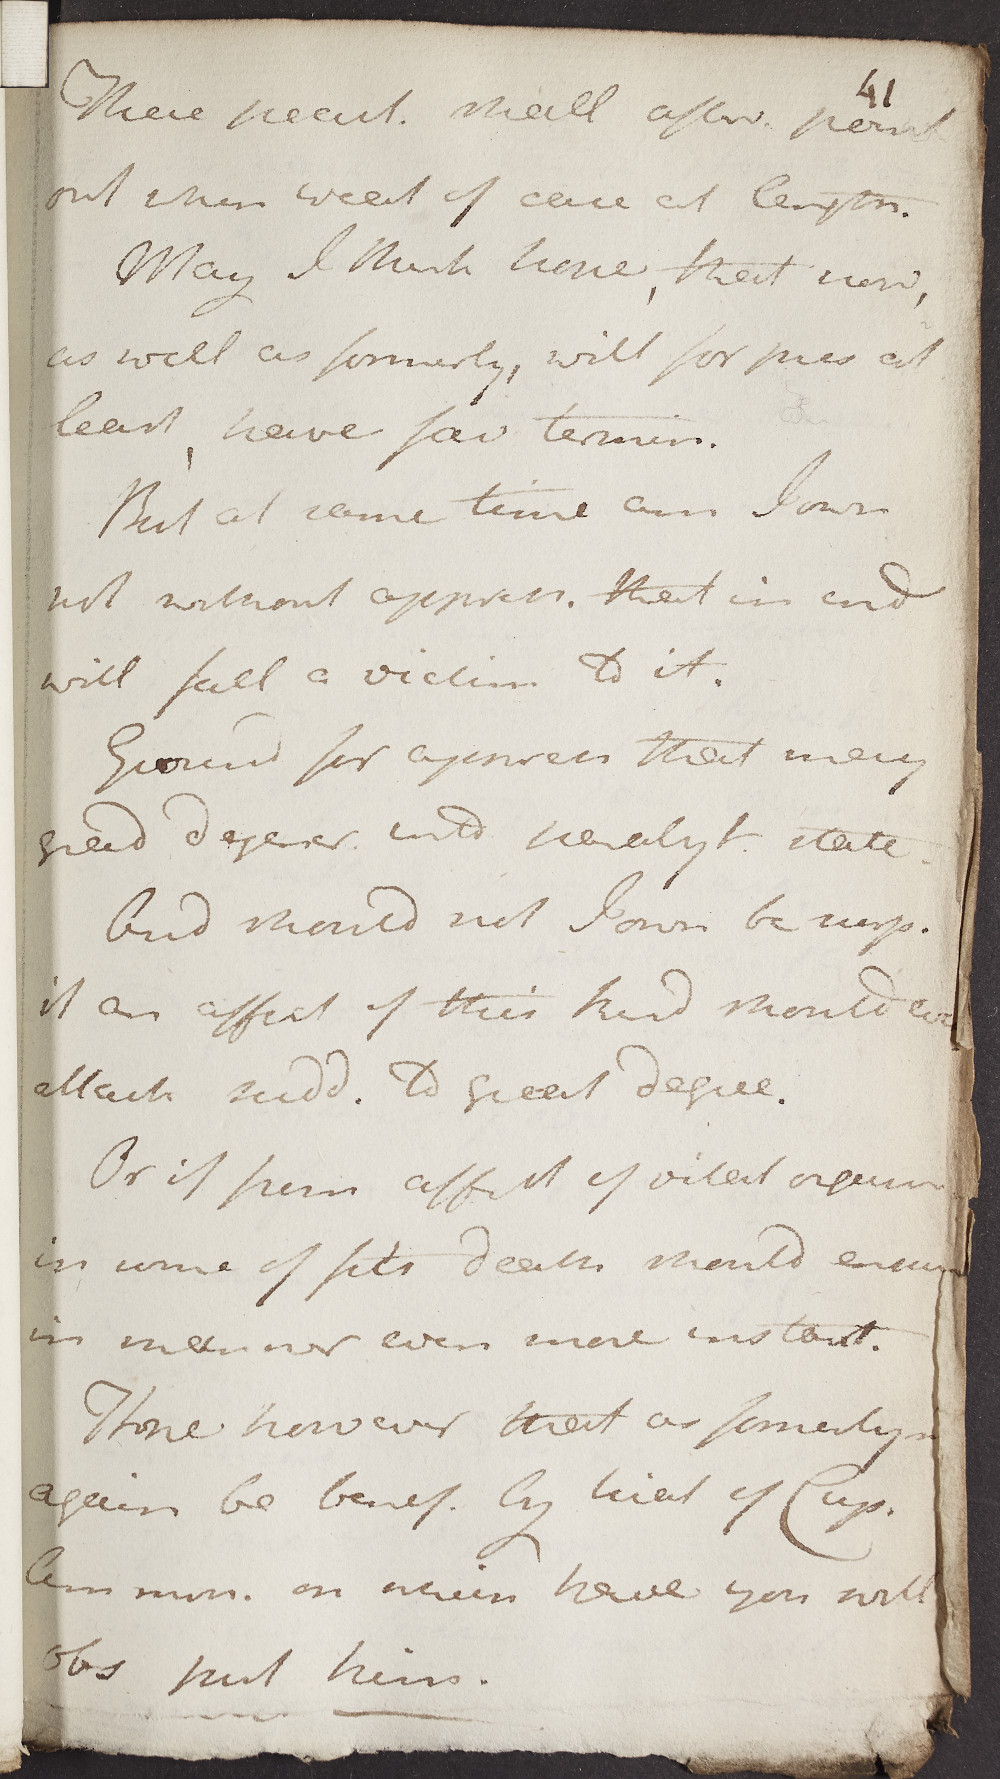 41
These pecul. shall after. point
out when treat of case at length.
May I think hope, that now,
as well as formerly, will for pres at
least, have fav termin.
But at same time am I own
not without appreh. that in end
will fall a victim to it.
Ground for appreh that may
grad degener. into paralyt. state.
And should not I own be surp.
if an affect of this kind should
attack sudd. to great degree.
Or if from affect of vital organ
in some of fits death should ensue
in manner even more instant.
Hope however that as formerly
again be benef. by trial of Cup.
Ammon. on which have you will
obs put him.